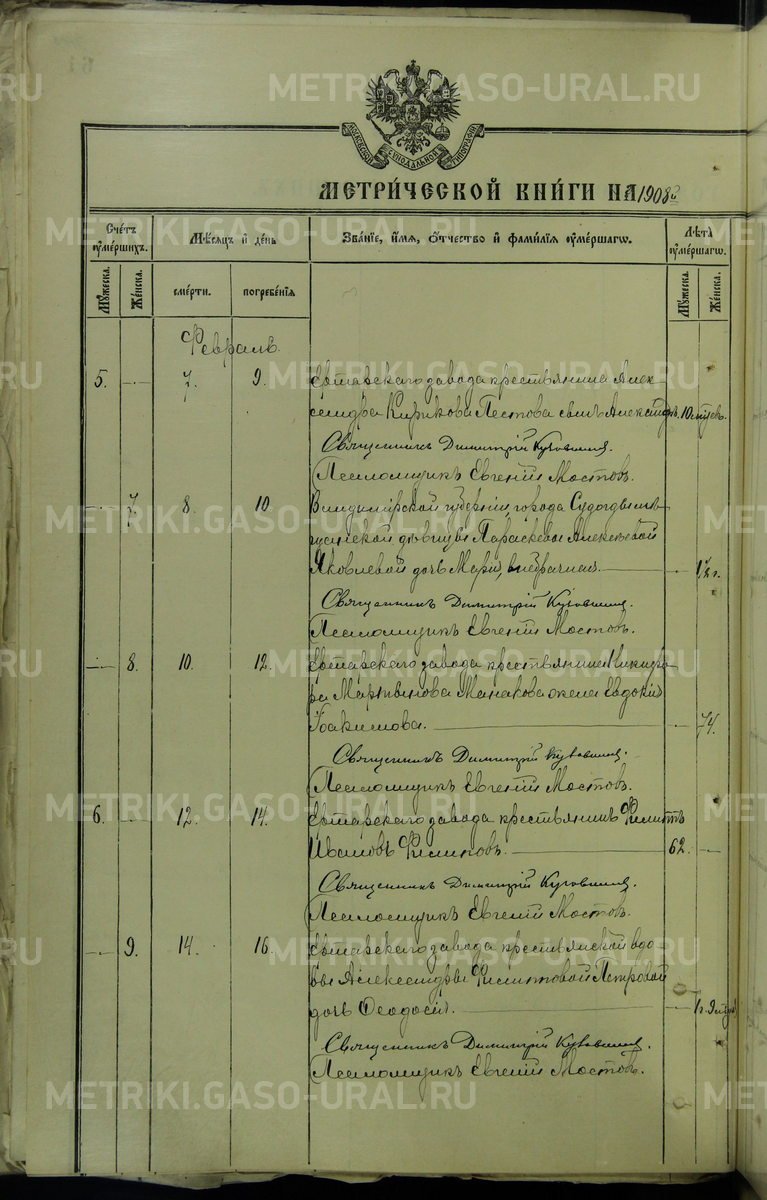 МОСКОВСКОЙ СУНОДАЛЬНОЙ ТИПОГРАФІИ
МЕТРИ́ЧЕСКОЙ КНИ́ГИ НА 1908 г
Сче́тъ ѹме́ршихъ.
Мѣ́сяцъ и҆ де́нь
Зва́нїе, и҆́мя, ѻ҆́тчество и҆ фами́лїя ѹме́ршагѡ.
Лѣ́та ѹме́ршагѡ.
Мꙋ́жеска.
Же́нска.
сме́рти.
погребе́нїѧ
Мꙋ́жеска.
Же́нска.
Февраль.
5. 7. 9. Ертарскаго завода крестьянина Алек-
сандра Кирикова Пестова сынъ Александръ. 10 мѣсяц.
Священникъ Димитрій Кузовников.
Псаломщикъ Евгеній Мостовъ.
7. 8. 10. Владимірской губерніи, города Судогды мѣ-
щанской дѣвицы Параскевы Алексѣевой
Яковлевой дочь Марія, внебрачная. 1½ г.
Священникъ Димитрій
Псаломщикъ Евгеній Мостовъ.
8. 10. 12. Ертарскаго завода крестьянина Никифо-
ра Мартынова Манакова жена Евдокія
Іоакимова. 74.
Священникъ Димитрій
Псаломщикъ Евгеній Мостовъ.
6. 12. 14. Ертарскаго завода крестьянинъ Филиппъ
Ивановъ Филиповъ. 62.
Священникъ Димитрій
Псаломщикъ Евгеній Мостовъ.
9. 14. 16. Ертарскаго завода крестьянской вдо-
вы Александры Филипповой Петровой
дочь Ѳеодосія. 1 г. 9 мѣс
Священникъ Димитрій
Псаломщикъ Евгеній Мостовъ.
METRIKI.GASO-URAL.RU